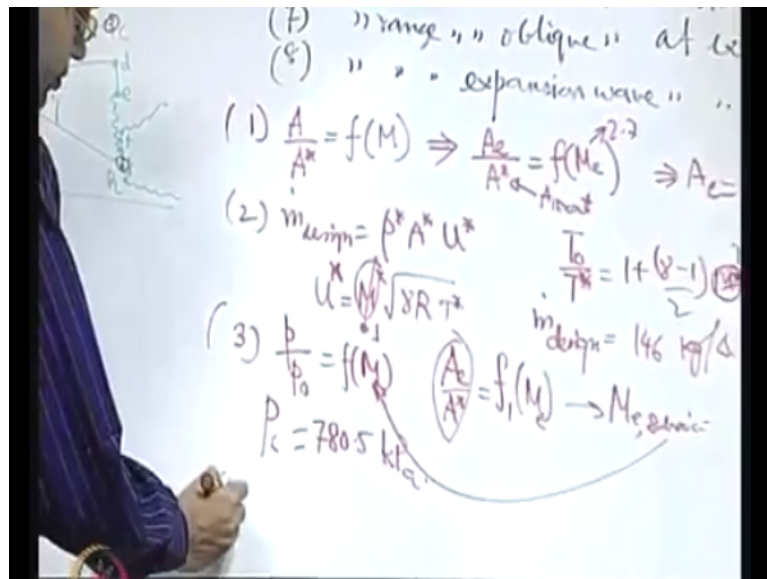 (7) " range " " oblique " at ex
(8) " " " expansion wave " "
(1) A/A* = f(M) ⇒ Ae/A* = f(Me) ⇒ Ae =
2.7
Athroat
(2) ṁdesign = ρ* A* U*
U* = M* √γRT*
1
T0/T* = 1 + (γ-1)/2
ṁdesign = 146 kg/s
(3) p/p0 = f(M) Ae/A* = f1(Me) → Me,
Pc = 780.5 kPa